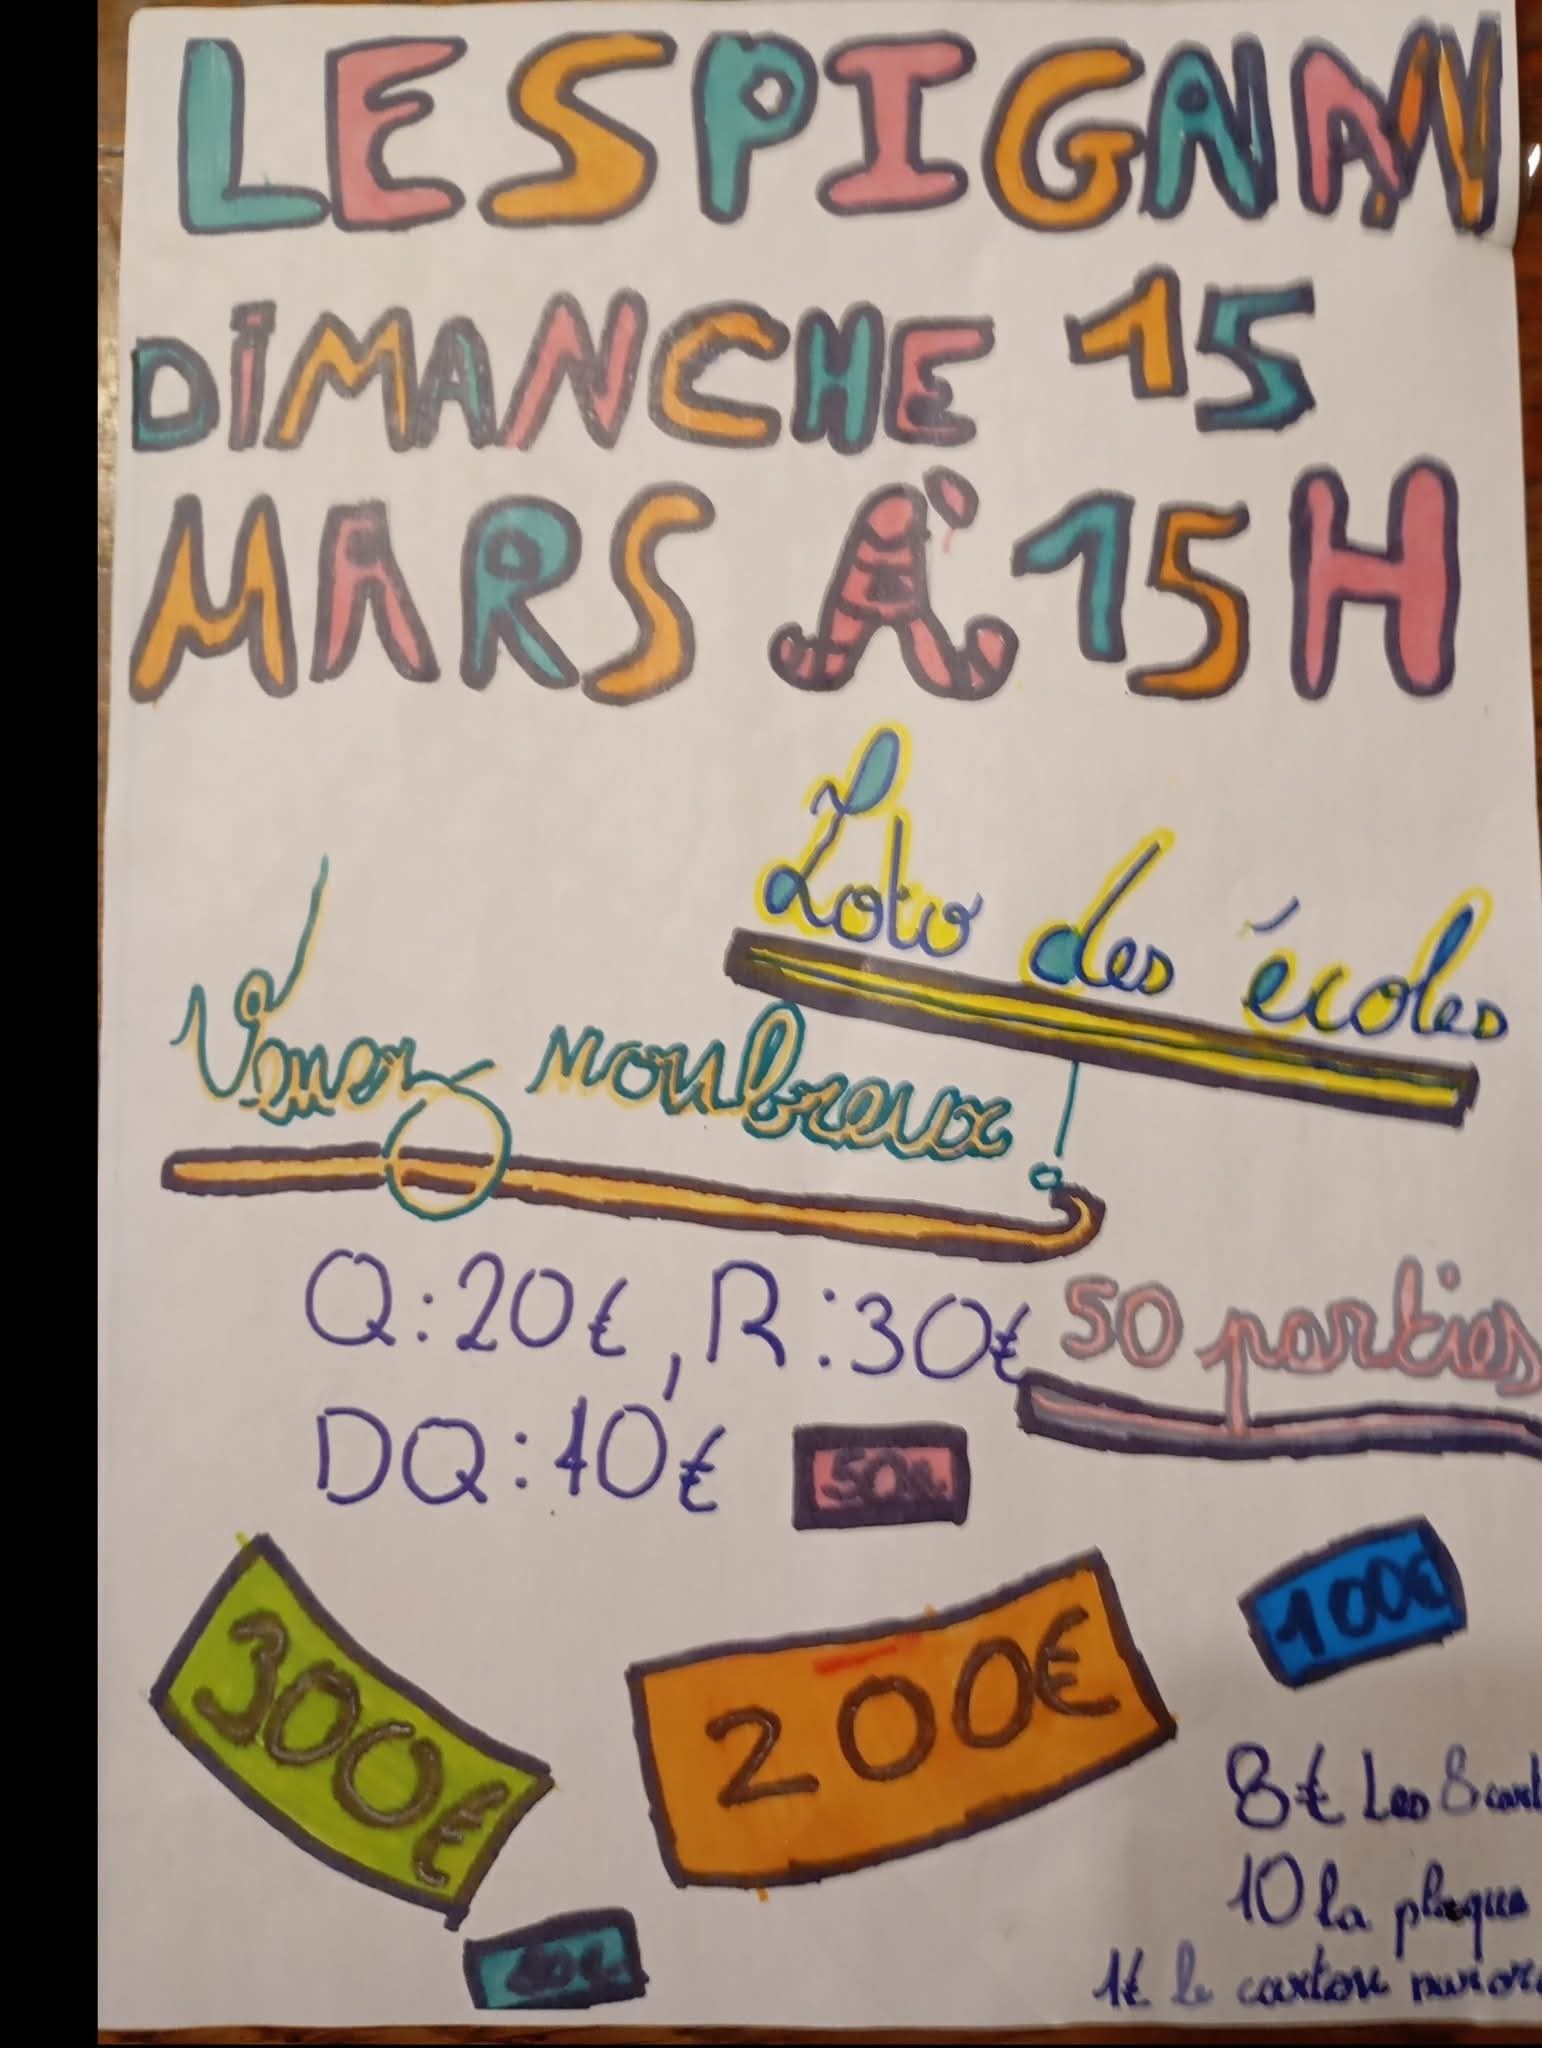 LESPIGNAN
DIMANCHE 15
MARS À 15H
Loto des écoles
Venez nombreux
Q:20€, R:30€
50 parties
DQ:10€
50€
300€
200€
100€
8€ Les 8 cart
10 la plaque
1€ le carton